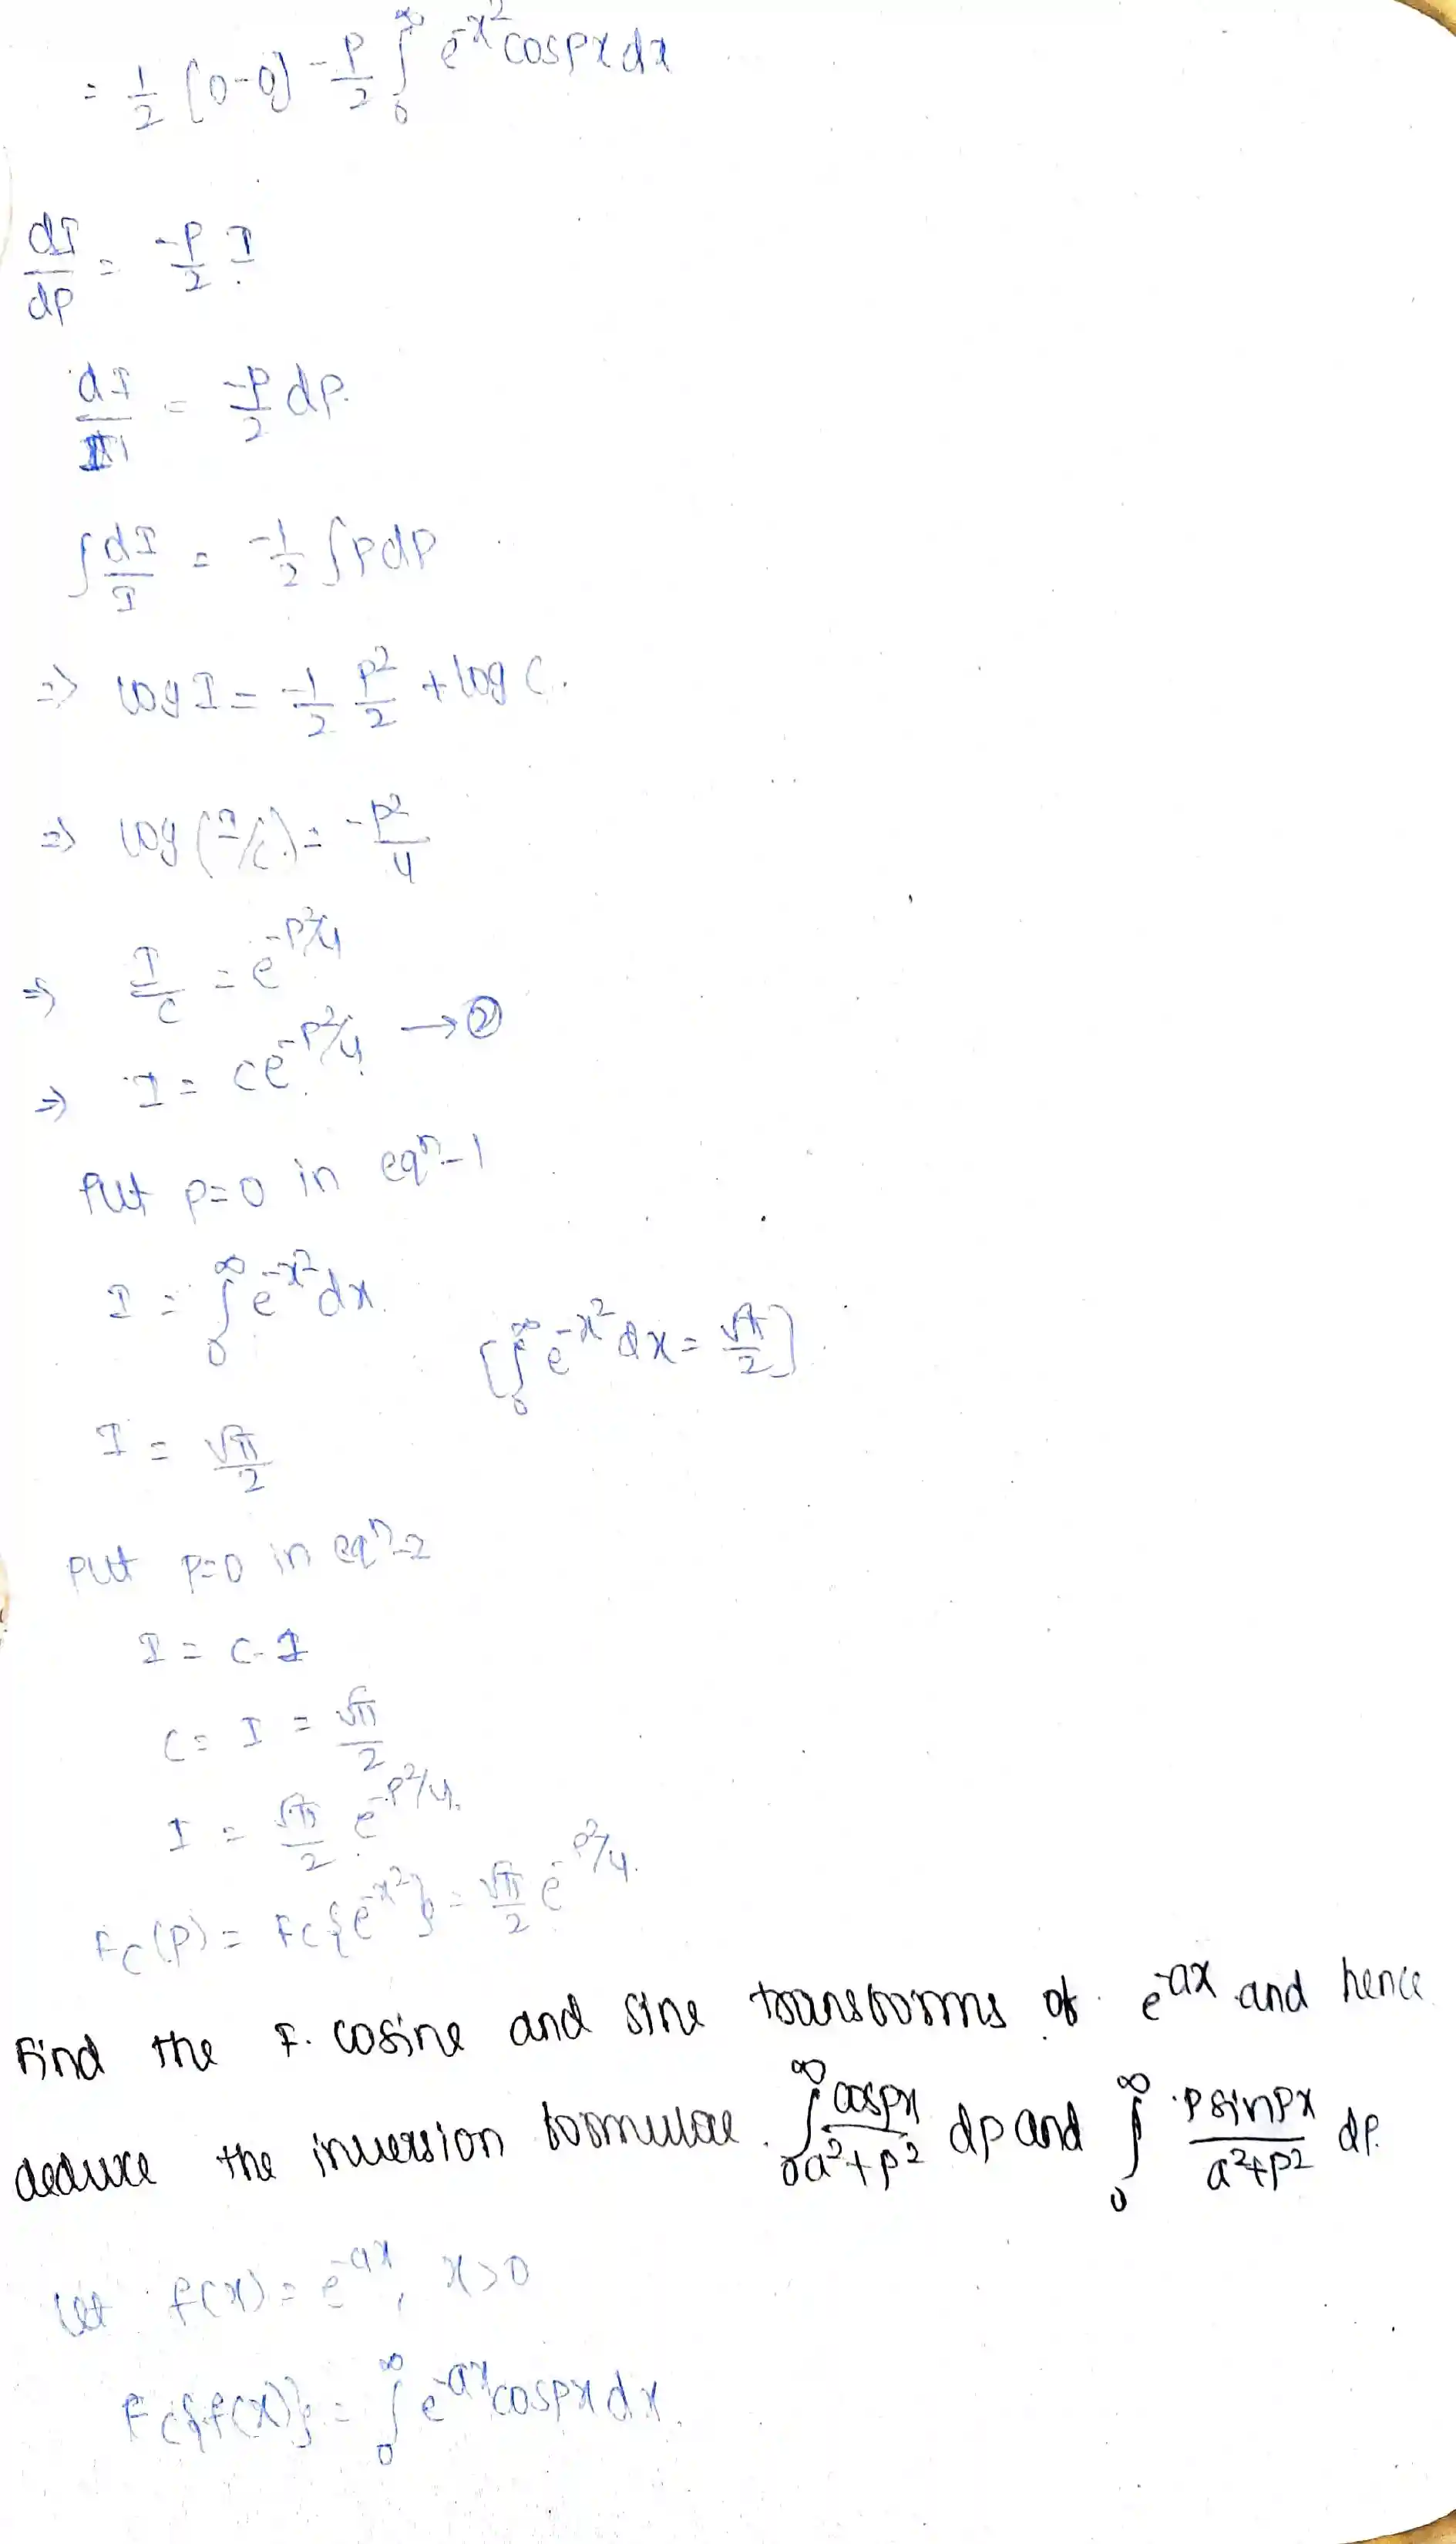 = 1/2 [0-0] - p/2 ∫₀^∞ e^{-x²} cospx dx
dI/dp = -p/2 I
dI/I = -p/2 dp.
∫ dI/I = -1/2 ∫ p dp
⇒ log I = -1/2 p²/2 + log C.
⇒ log (I/C) = -p²/4
⇒ I/C = e^{-p²/4}
⇒ I = ce^{-p²/4} → ②
Put p=0 in eqⁿ-1
I = ∫₀^∞ e^{-x²} dx
[∫₀^∞ e^{-x²} dx = √π/2]
I = √π/2
Put p=0 in eqⁿ-2
I = C-1
C = I = √π/2
I = √π/2 e^{-p²/4}.
Fc(p) = Fc{e^{-x²}} = √π/2 e^{-p²/4}.
Find the F. cosine and sine transforms of e^{-ax} and hence
deduce the inversion formulae. ∫₀^∞ cospx/a²+p² dp and ∫₀^∞ p sinpx/a²+p² dp.
Let f(x) = e^{-ax}, x>0
Fc{f(x)} = ∫₀^∞ e^{-ax} cospx dx.